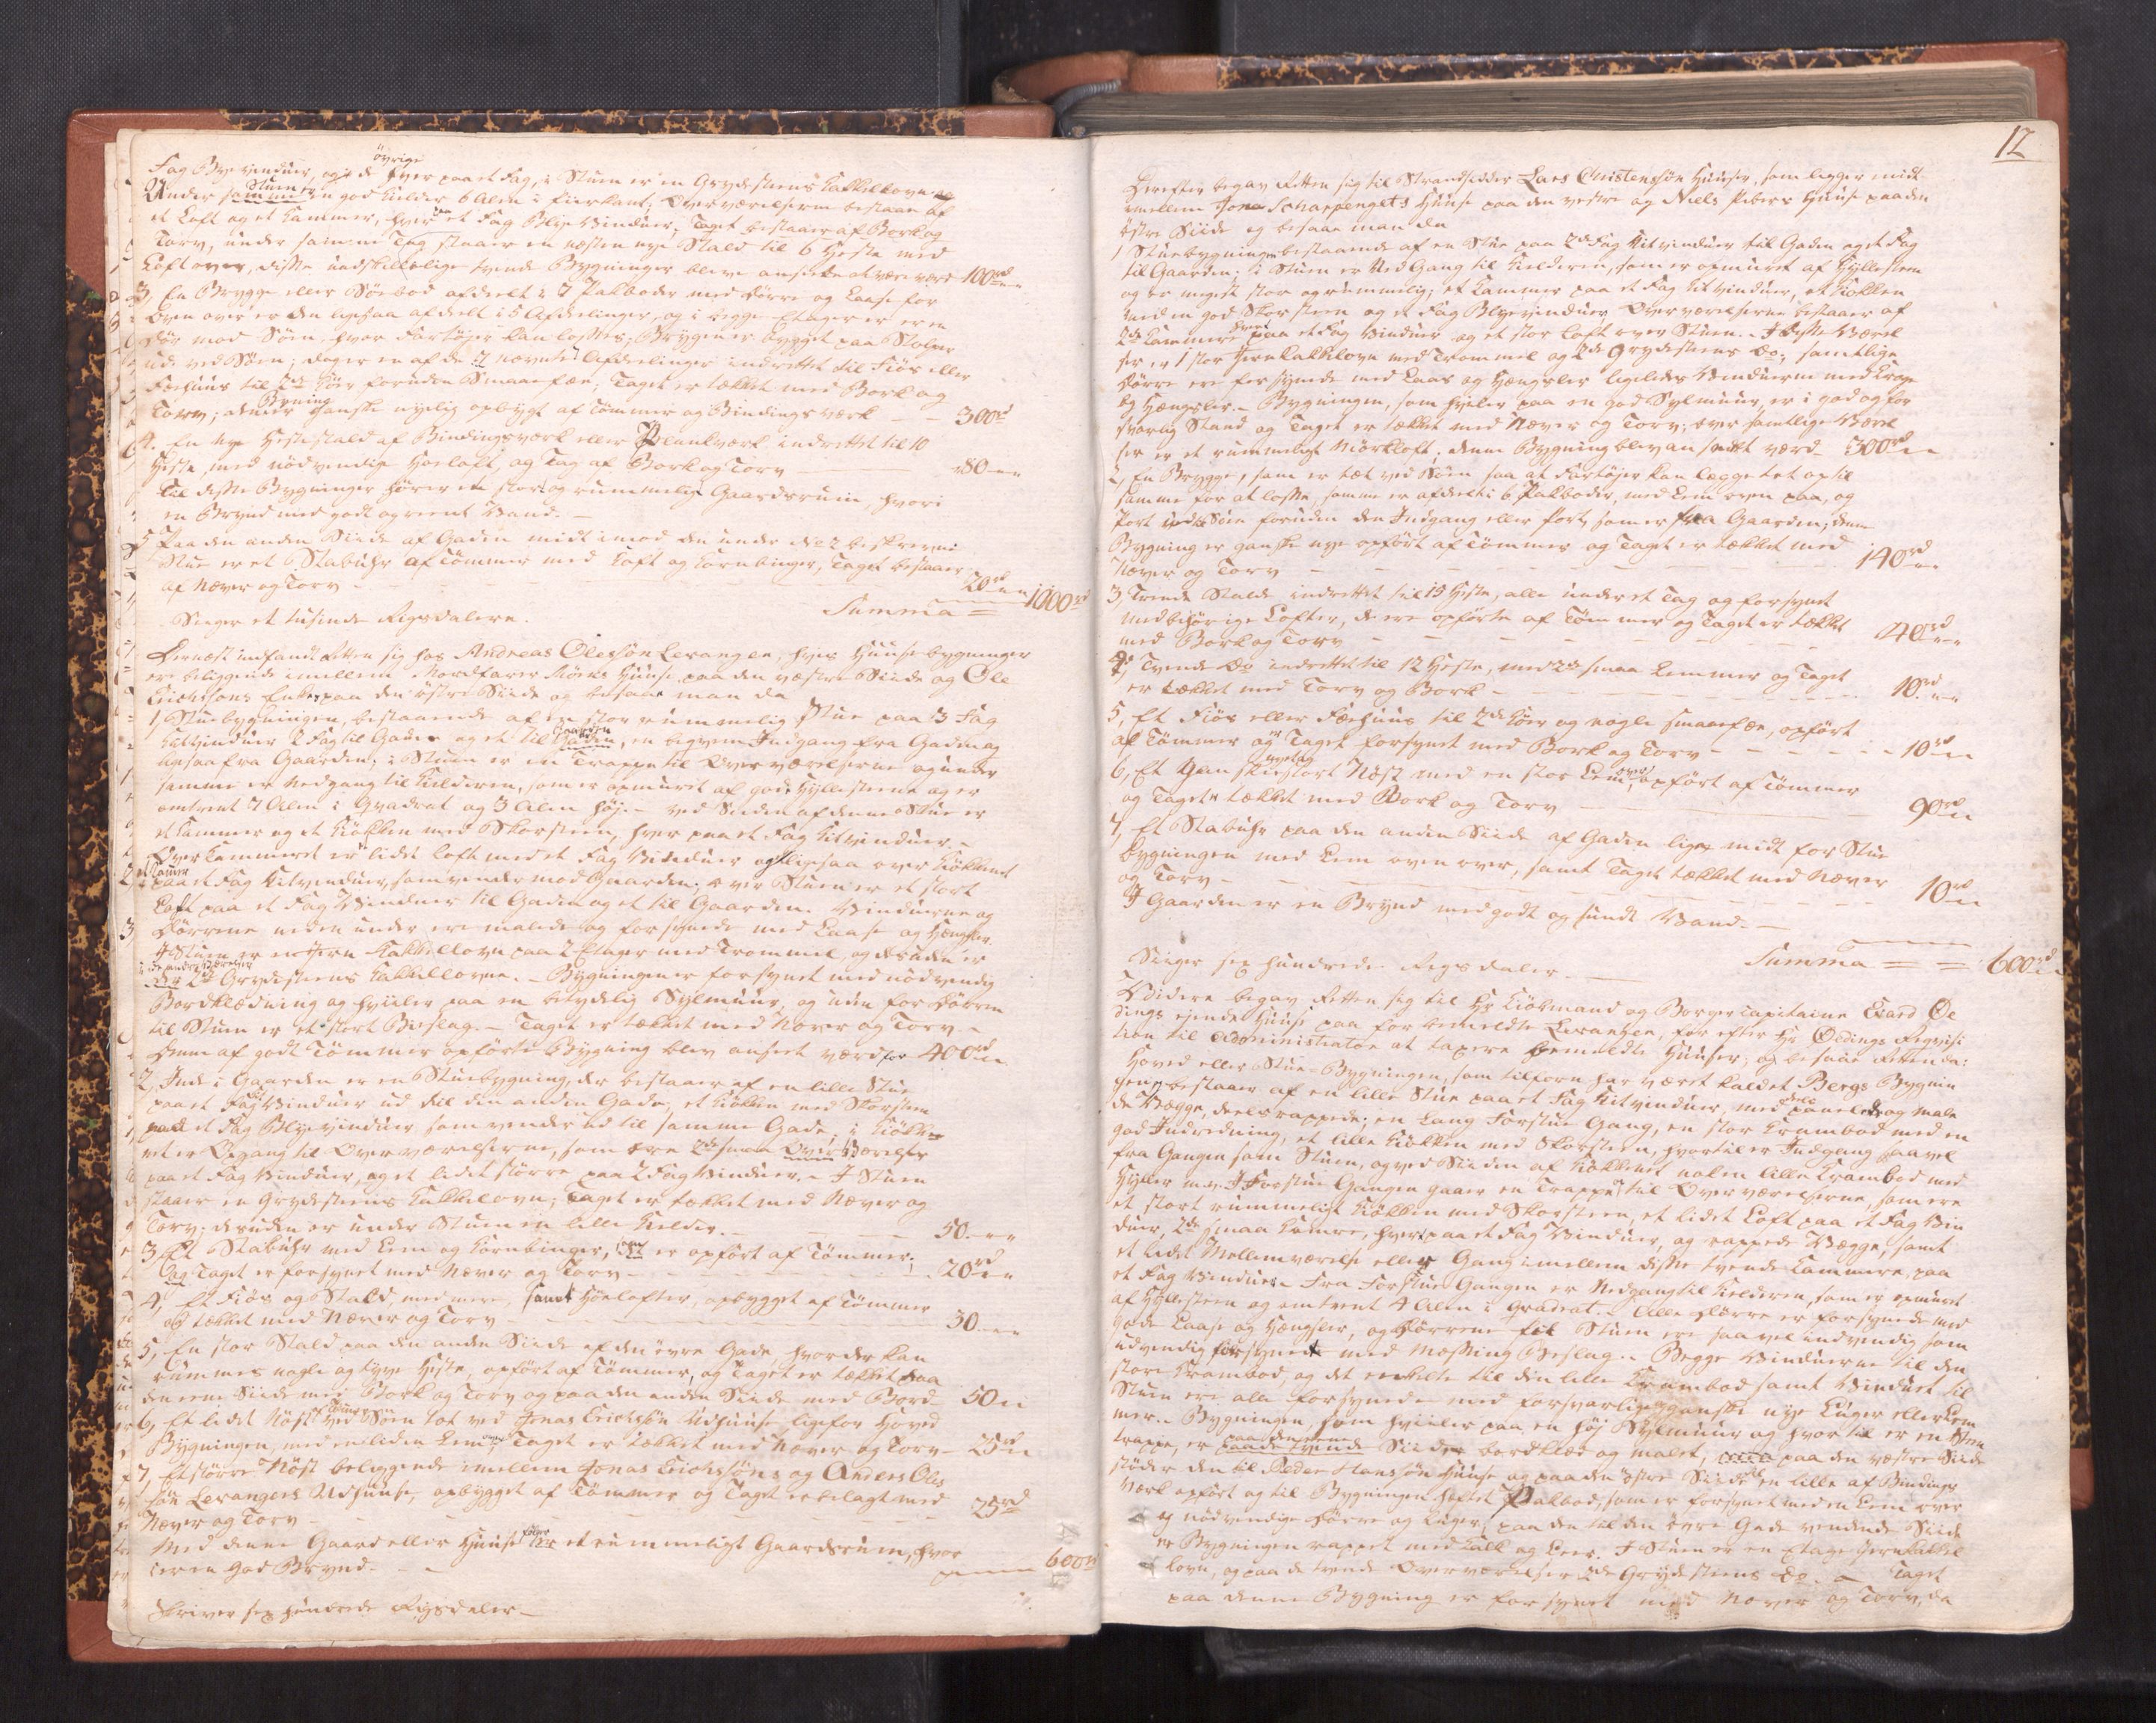 Fag Blye vinduer, og i de øvrige hver paa et Fag, i Stuen er en Grydesteens Kakkelovn og
Under samme Stuen er en god Kielder 6 Alen i Fiirkant; Overværelserne bestaar af
et Loft og et Kammer, hver et Fag Blye Vinduer, Taget bestaaer af Bork og
Torv, under samme Tag staaer en næsten nye Stald til 6 Heste med
Loft over, disse uadskillelige tvende Bygninger bleve ansette at være værd 100 rd
3, En Brygge eller Søebod afdeelt i 7 Pakboder med Dørre og Laase for
Oven over er den ligesaa afdelt i 5 Afdeelinger, og i begge Etager er en
Dør mod Søen, hvor Fartøjer kan losses; Bryggen er bygget paa Stolper
ud ved Søen; dog er en af de 7 nævnte Afdeelinger indrettet til Fiøs eller
Fæehuus til 2de Kiør foruden Smaae fæe; Taget er tækket med Bork og
Torv; denne Bygning ganske nyelig opbygt af Tømmer og Bindingsværk - - 300 rd
4. En nye Hestestald af Bindingsværk eller Plankværk indrettet til 10
Heste, med nødvendig Høeloft, og Tag af Bork og Torv 80 - -
Til disse Bygninger hører en stor og rummelig Gaardsrum, hvori
en Brynd med godt og reent Vand. -
5 Paa den anden Siide af Gaden midt imod den under No 2 beskrevne
Stue er et Stabuhr af Tømmer med Loft og Kornbinger, Taget bestaaer
af Næver og Torv - 20 rd
Summa = 1000 rd
Siger et tusinde Rigsdalere.
Dernæst indfandt Retten sig hos Andreas Olessøn Levanger, hvis Huuse bygninger
ere beliggende imellem Nordfarer Moens Huuse paa den væstre Siide og Ole
Erichsøns Enke paa den østre Siide og besaae man da
1, Stuebygningen, bestaaende af en stor rummelig Stue paa 3 Fag
Kitvinduer 2 Fag til Gaden og et til Gaarden, en beqvem Indgang fra Gaden og
ligesaa fra Gaarden; i Stuen er en Trappe til Overværelserne og under
samme er Nedgang til Kielderen, som er opmuret af gode Hyllesteene og er
omtrent 7 Alen i Qvadrat og 3 Alen høj. - ved Siiden af denne Stue er
et Kammer og et Kiøkken med Skorsteen, hver paa et Fag Kitvinduer. -
Over Kammeret er et lidet loft med et Fag Vinduer og ligesaa over Kiøkkenet
et Kammer paa et Fag Kitvinduer, som vender mod Gaarden; over Stuen er et stort
Loft paa et Fag Vinduer til Gaden og et til Gaarden. Vinduerne og
Dørrene neden under ere malede og forsynede med Laase og Hængsler.
I Stuen er en Jern Kakkellovn paa 2 Etager med Trommel, og desuden er
i de andre Værelser 2de Grydesteens Kakkellovne. - Bygningen er forsynet med nødvendig
Bordklædning og hviiler paa en betydelig Sylmuur, og uden for Dørren
til Stuen er et stort Bislag. - Taget er tækket med Næver og Torv. -
Denne af godt Tømmer opførte Bygning blev anseet værd for 400 rd
2, Inde i Gaarden er en Stuebygning, der bestaaer af en lille Stue
paa et Fag Vinduer ud til den anden Gade, et Kiøkken med Skorsteen
paa et Fag Blyevinduer som vender ud til samme Gade, i Kiøkke-
net er Opgang til Overværelserne, som ere 2de smaa Værelser
paa et Fag Vinduer, og et lidet større paa 2 Fag Vinduer. - I Stuen
staaer en Grydesteens Kakkelovn; Taget er tækket med Næver og
Torv; desuden er under Stuen en lille Kielder. - 50 - -
3 Et Stabuhr med Lem og Kornbinger, er opført af Tømmer;
og Taget er forsynet med Næver og Torv - 20 rd
4, Et Fiøs og Stald, med mere, samt Høelofter, opbygget af Tømmer
og tækket med Næver og Torv - 30 - -
5, En stor Stald paa den anden Siide af den øvre Gade hvor der kan
rummes nogle og tyve Heste, opført af Tømmer, og Taget er tækket paa
den eene Siide med Bork og Torv og paa den anden Siide med Bord - 50
6, Et lidet Nøst ved Søen tæt ved Jonas Erichsøn Udhuuse, ligefor Hoved
Bygningen, med en liden Lem over Taget er tækket med Næver og Torv - 25 rd
7, Et større Nøst beliggende imellem Jonas Erichsøns og Anders Oles
søn Levangers Udhuuse, opbygget af Tømmer og Taget er belagt med
Næver og Torv - 25 rd
Med denne Gaard eller Huuse følger et rummeligt Gaardsrum, hvor
i er en god Brynd. - 600 rd
Skriver sex hundrede Rigsdaler -
12
Derefter begav Retten sig til Strandsidder Lars Christenssøn Huuse, som ligger midt
mellem Jonas Scharpengets Huuse paa den vestre og Niels Pibers Huuse paa den
østre Siide og besaae man da
1 Stuebygningen bestaaende af en Stue paa 2de Fag Kitvinduer til Gaden og et Fag
til Gaarden; i Stuen er Ned Gang til Kielderen, som er opmuret af Hyllesteen
og er meget stor og rummelig; et Kammer paa et Fag Kitvinduer, et Kiøkken
med en god Skorsteen og et Fag Blyevinduer Overværelserne bestaaer af
2de Kammere hver paa et Fag Vinduer og et stor Loft over Stuen. - I disse Værel
ser er 1 stor Jernkakkelovn med Trommel og 2de Grydesteens do; samtlige
Dørre ere forsynede med Laas og Hængsler ligeledes Vinduerne med Kroge
og Hængsler. - Bygningen, som hviler paa en god Sylmuur, er i god og for
svarlig Stand og Taget er tækket med Næver og Torv; over samtlige Værel
ser er et rummeligt Mørkloft; denne Bygning blev ansat værd - 300 rd
2, En Brygge, som er tæt ved Søen saa at Fartøjer kan lægge tæt op til
samme for at losse, samme er afdeelt i 6 Pakboder, med Lem oven paa, og
Port ud til Søen foruden den Indgang eller Port, som er fra Gaarden; denne
Bygning er ganske nye opført af Tømmer og Taget er tækket med
Næver og Torv - 140 rd
3, Trende Stalde indrettet til 19 Heste, alle under et Tag og forsynet
med behørige Lofter, de ere opførte af Tømmer og Taget er tækket
med Bork og Torv - 40 rd
4, Tvende Do indrettet til 12 Heste, med 2de smaa Lemmer og Taget
er tækket med Torv og Bork - 10 rd
5, Et Fiøs eller Fæehuus til 2de Kiør og nogle Smaaefæe, opført
af Tømmer og er Taget forsynet med Bork og Torv - 10 rd
6, Et Ganske nyelig stort Nøst med en stor Lem over, opført af Tømmer
og Taget tækket med Bork og Torv - 90 rd
7, Et Stabuhr paa den anden Siide af Gaden lige midt for Stue
bygningen med Lem oven over, samt Taget tækket med Næver
og Torv - 10 rd
I Gaarden er en Brynd med godt og sundt Vand. -
Summa = = 600 rd
Siiger sex hundrede Rigsdaler. -
Videre begav Retten sig til Hr Kiøbmand og Borgercapitaine Eiard Øe
dings ejende Huuse paa forbemeldte Levanger, for efter Hr Oedings Reqvisi
tion til Administrator at taxere bemeldte Huuser; og besaae Retten da:
Hoved eller Stue-Bygningen, som tilforn har været kaldet Bergs Bygnin
gen, bestaaer af en lille Stue paa et Fag Kitvinduer, med deels panelede og male
de Vægge, deels rappede; en Lang Forstue Gang, en stor Krambod med en
god Indredning, et lille Kiøkken med Skorsteen, hvortil er Indgang saavel
fra Gangen som Stuen, og ved Siiden af Kiøkkenet nok en lille Krambod med
Hyller m.v. I Forstue Gangen gaaer en Trappe til Overværelserne, som ere
et stort rummeligt Kiøkken med Skorsteen, et lidet Loft paa et Fag Vin
duer, 2de smaa Kamre, hvert paa et Fag Vinduer, og rappede Vægge, samt
et lidet Mellemværelse eller Gang imellem disse tvende Kammere, paa
et Fag Vinduer. - Fra Forstue Gangen er Nedgang til Kielderen, som er opmuret
af Hyllesteen og omtrent 4 Alen i Qvadrat. - Alle Dørre er forsynede med
gode Laase og Hængsler, og Dørrene til Stuen ere saavel indvendig som
udvendig forsynet med Messing Beslag. - Begge Vinduerne til den
store Krambod, og det enkelte til den lille Krambod samt Vinduet til
Stuen ere alle forsynede med forsvarlig ganske nye Luger eller Lem
mer. - Bygningen, som hviiler paa en høj Sylmuur og hvortil er en Steen
trappe, er paa den eene Siide bordklæd og malet, paa den væstre Siide
støder den til Peder Hanssøn Huuse og paa den østre Siide en lille af Bindings
værk opført og til Bygningen hæftet Pakbod, som er forsynet med en Lem over
og nødvendige Dørre og Luger, paa den til den øvre Gade vendende Siide
er Bygningen rappet med Kalk og Leer. I Stuen er en Etage Jernkakkel
lovn, og paa de tvende Overværelser 2de Grydesteens do. - Taget
paa denne Bygning er forsynet med Næver og Torv, da